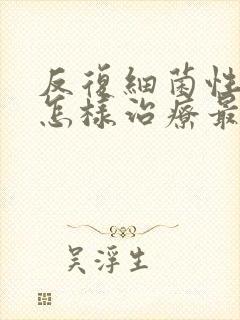 反復細菌性
怎樣治療最
吳浮生